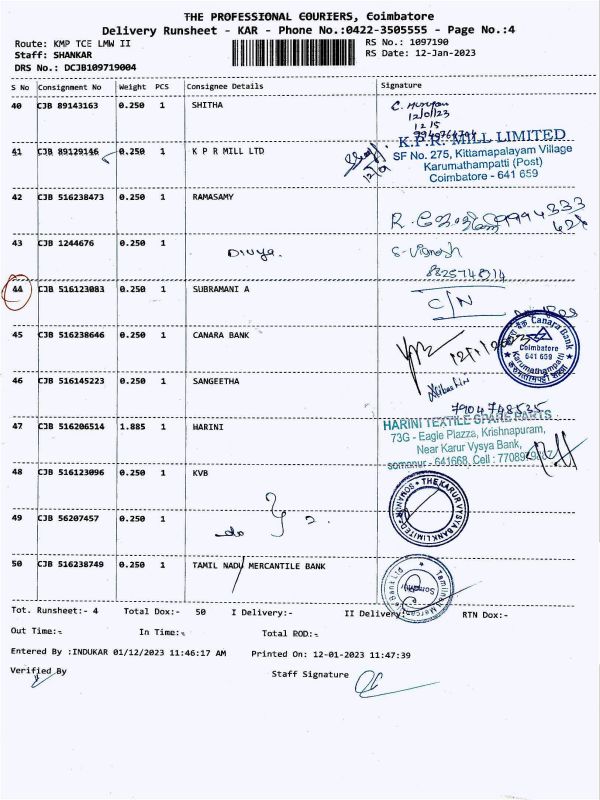 THE PROFESSIONAL COURIERS, Coimbatore
Delivery Runsheet - KAR - Phone No.:0422-3505555 - Page No.:4
Route: KMP TCE LMW II
RS No.: 1097190
Staff: SHANKAR
RS Date: 12-Jan-2023
DRS No.: DCJB109719004
S No Consignment No Weight PCS Consignee Details Signature
40 CJB 89143163 0.250 1 SHITHA
12/01/23
12 15
41 CJB 89129146 0.250 1 K P R MILL LTD
K.P.R. MILL LIMITED
SF No. 275, Kittamapalayam Village
Karumathampatti (Post)
Coimbatore - 641 659
42 CJB 516238473 0.250 1 RAMASAMY
43 CJB 1244676 0.250 1 Divya.
S-Vignesh
44 CJB 516123083 0.250 1 SUBRAMANI A
C/N
45 CJB 516238646 0.250 1 CANARA BANK
Canara Bank
Coimbatore
641 659
Karumathampatti
46 CJB 516145223 0.250 1 SANGEETHA
7904748535
47 CJB 516206514 1.885 1 HARINI
HARINI TEXTILE SPARE PARTS
73G - Eagle Plazza, Krishnapuram,
Near Karur Vysya Bank,
somanur - 641668. Cell :
48 CJB 516123096 0.250 1 KVB
THE KARUR VYSYA BANK LIMITED
SOMANUR
49 CJB 56207457 0.250 1
do
50 CJB 516238749 0.250 1 TAMIL NADU MERCANTILE BANK
Tamilnad Mercantile Bank Ltd
Tot. Runsheet:- 4 Total Dox:- 50 I Delivery:- II Delivery:- RTN Dox:-
Out Time:- In Time:- Total ROD:-
Entered By :INDUKAR 01/12/2023 11:46:17 AM Printed On: 12-01-2023 11:47:39
Verified By Staff Signature